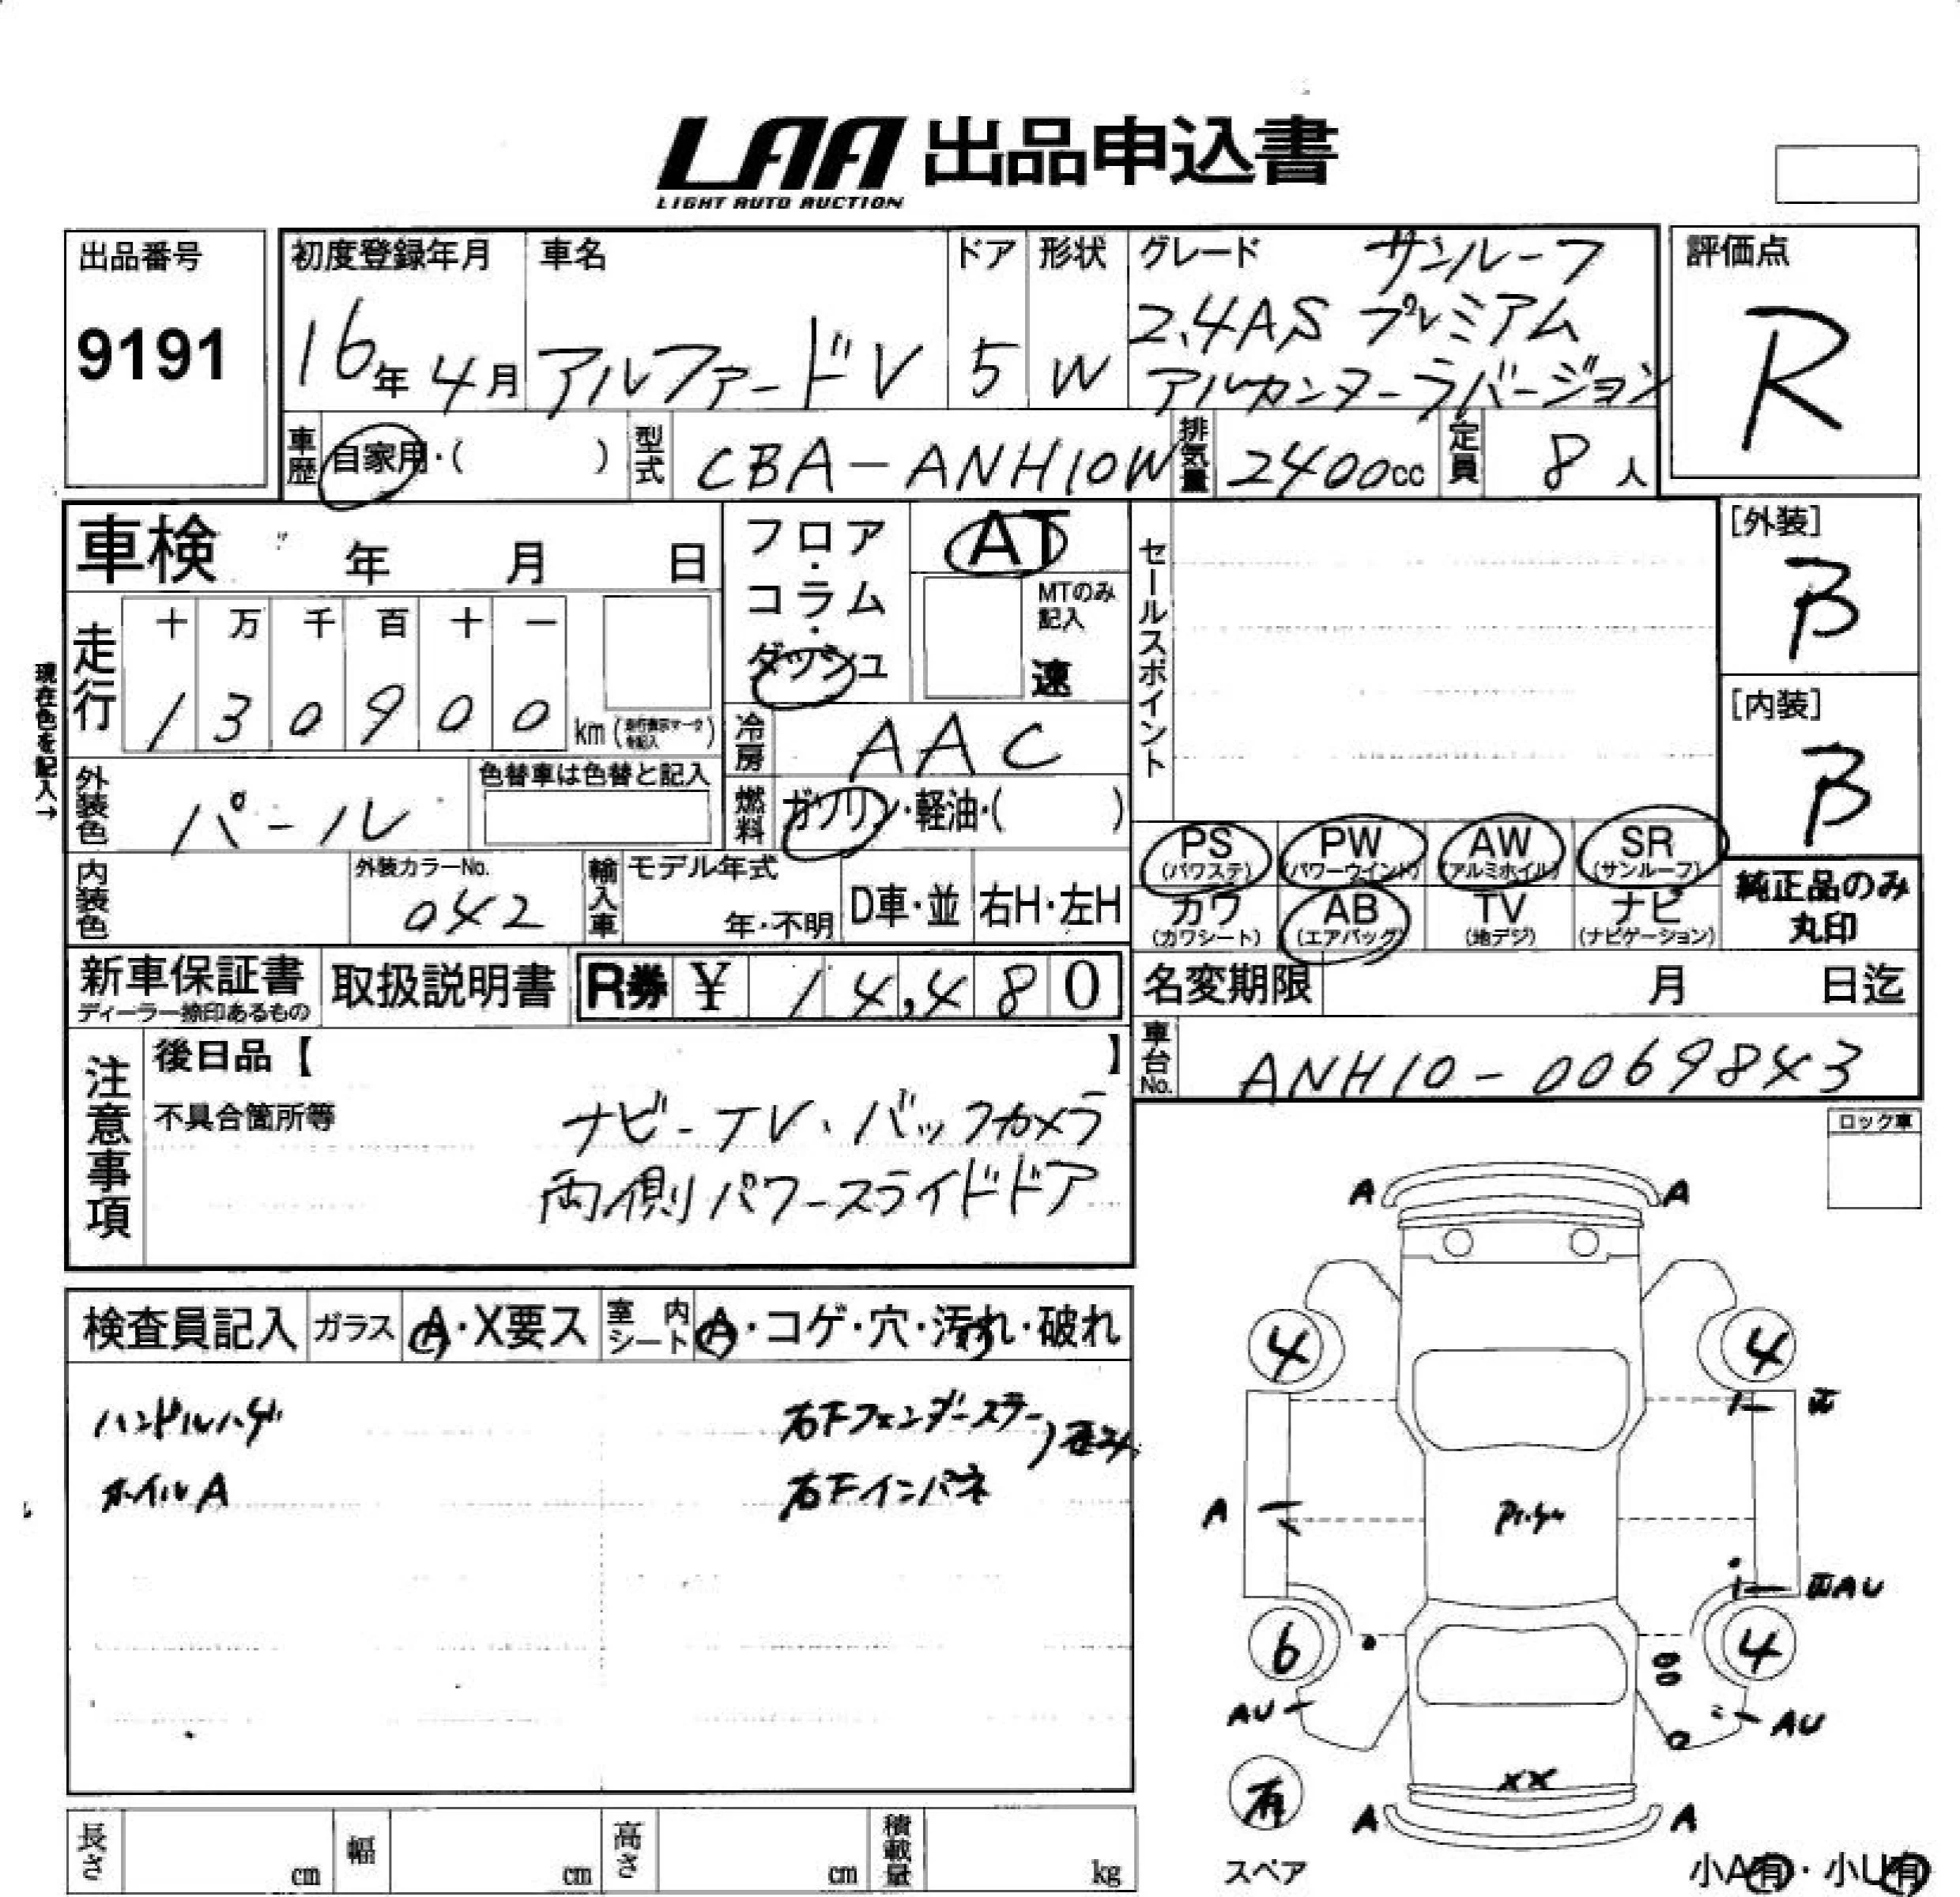 LAA 出品申込書
LIGHT AUTO AUCTION
出品番号
9191
初度登録年月
16年 4月
車名
アルファードV
ドア
5
形状
W
グレード サンルーフ
2.4AS プレミアム
アルカンターラバージョン
評価点
R
車歴 自家用・( )
型式 CBA-ANH10W
排気量 2400cc
定員 8人
車検 年 月 日
現在色を記入→
走行
十 万 千 百 十 一
1 3 0 9 0 0 km
フロア・コラム・ダッシュ
AT
MTのみ記入
速
セールスポイント
[外装]
B
[内装]
B
冷房 AAC
外装色 パール
色替車は色替と記入
燃料 ガソリン・軽油・( )
内装色
外装カラーNo.
042
輸入車 モデル年式
年・不明
D車・並
右H・左H
PS (パワステ)
PW (パワーウインド)
AW (アルミホイル)
SR (サンルーフ)
カワ (カワシート)
AB (エアバッグ)
TV (地デジ)
ナビ (ナビゲーション)
純正品のみ
丸印
新車保証書
ディーラー捺印あるもの
取扱説明書
R券 ¥ 14,480
名変期限 月 日迄
車台No. ANH10-0069843
注意事項
後日品【 】
不具合箇所等
ナビ-TV、バックカメラ
両側パワースライドドア
ロック車
検査員記入
ガラス A・X要ス
室内シート A・コゲ・穴・汚れ・破れ
ハンドルハゲ
ホイルA
右Fフェンダーステー
歪み
右Fインパネ
A A
4 4
A
6 4
AU
AU
AU
XX
A A
有
スペア
小A有・小U有
長さ cm
幅 cm
高さ cm
積載量 kg